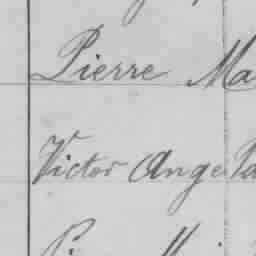 Pierre Ma
Victor Ange Pa